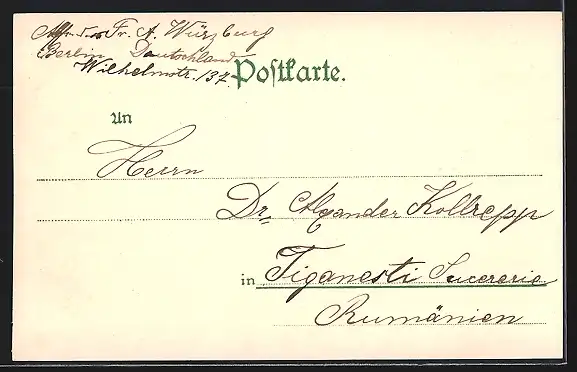 Fr. A. Würzburg
Berlin Deutschland
Wilhelmstr. 137.
Postkarte.
An
Herrn
Dr. Alexander Kollrepp
in Tiganesti Sucererie
Rumänien